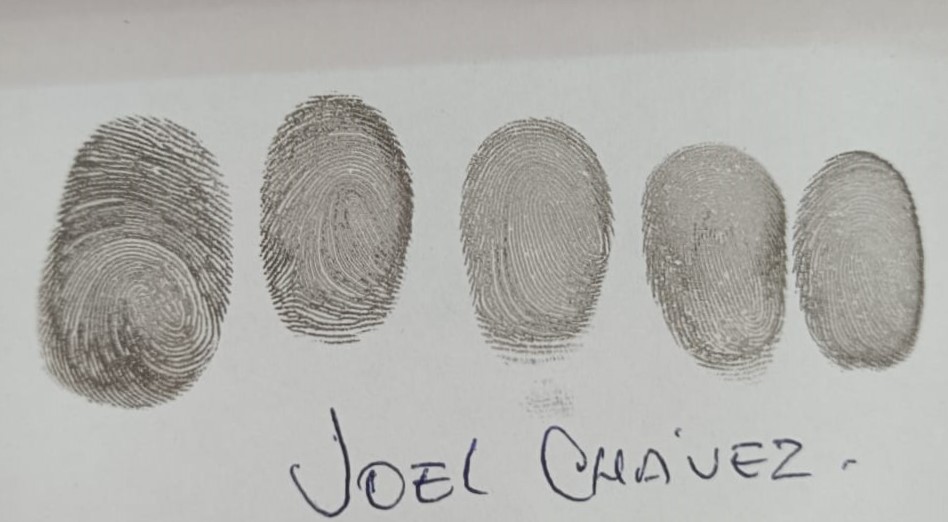 JOEL CHÁVEZ.